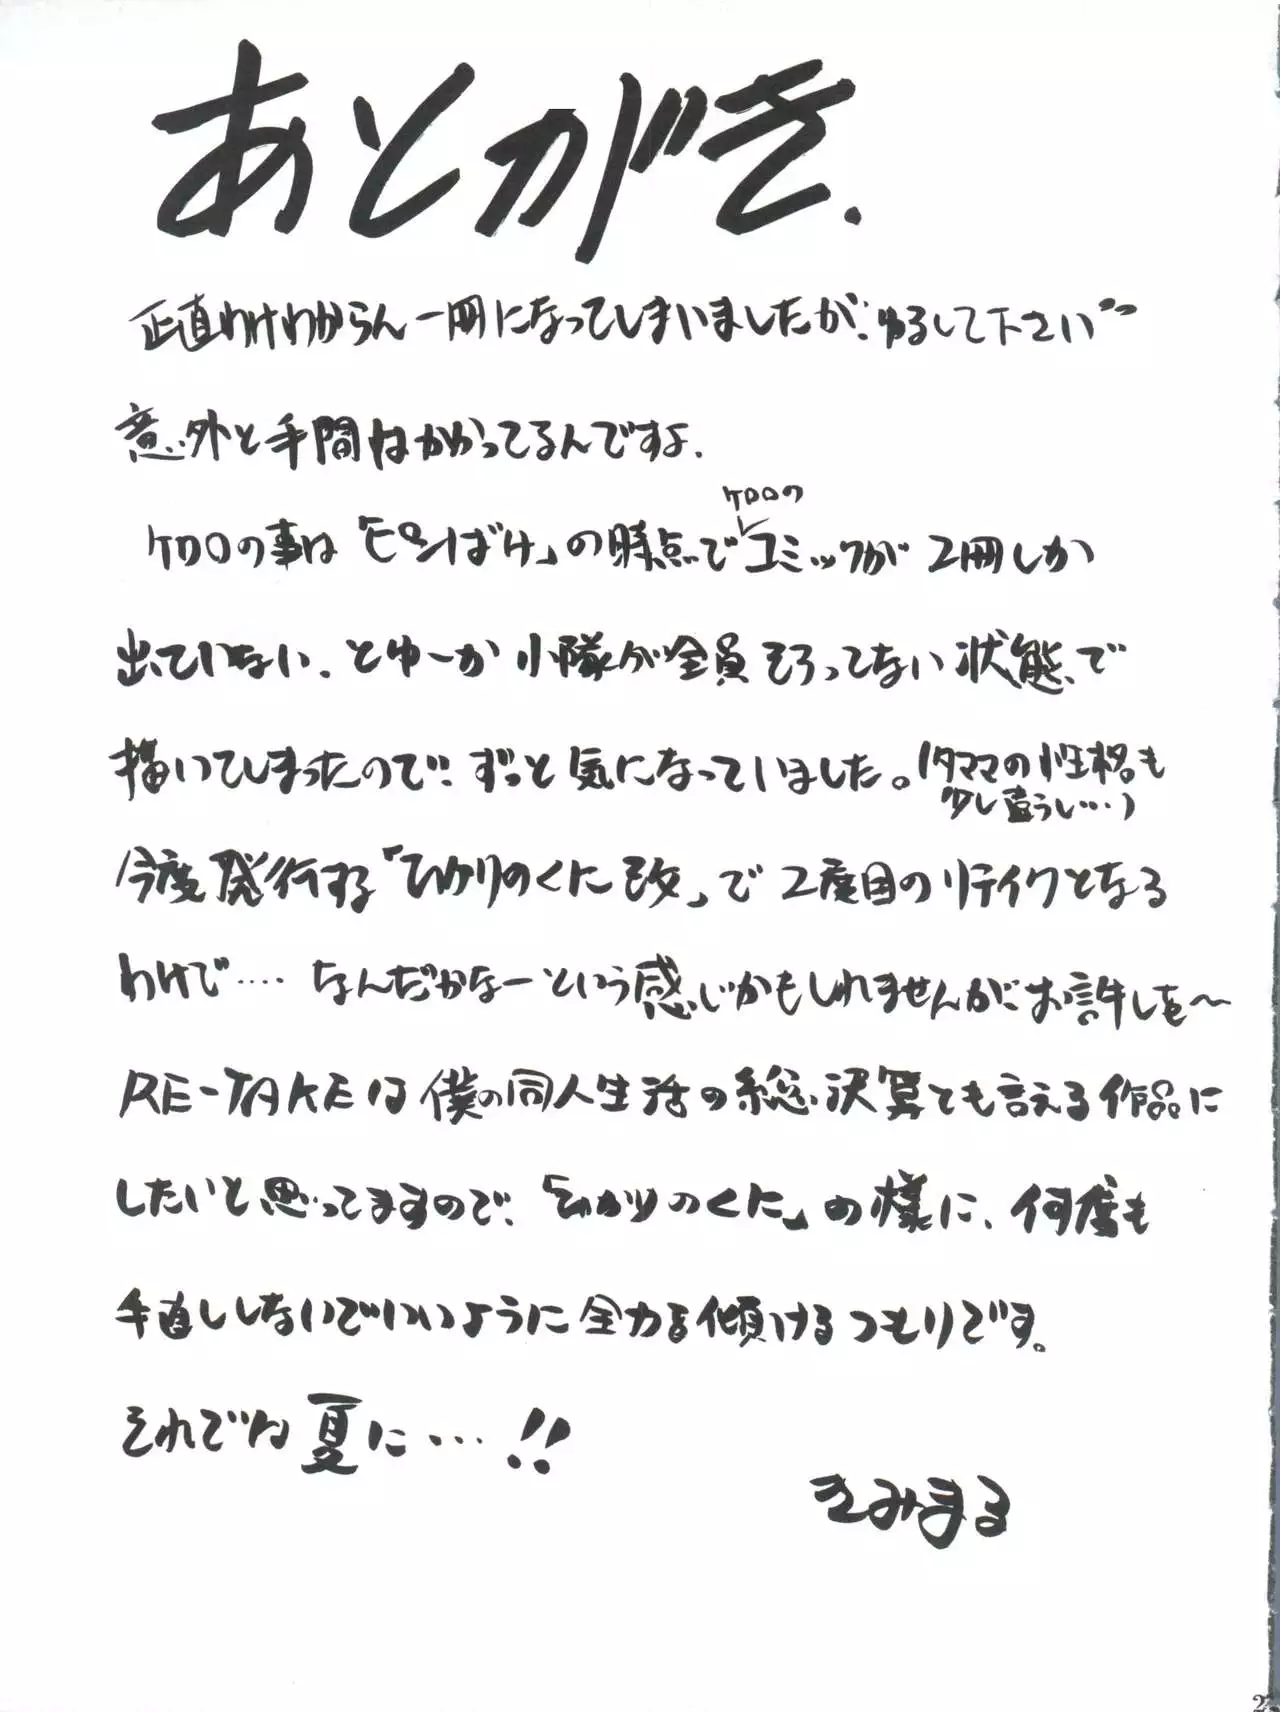 あとがき.
正直わけわからん一冊になってしまいましたが、ゆるして下さい
意外と手間はかかってるんですよ.
ケロロの
ケロロの事は「ピンばけ」の時点でコミックが2冊しか
出ていない. とゆーか小隊が全員そろってない状態で
描いてしまったので、ずっと気になっていました。(タママの性格も
少し違うし…)
今度発行する「ひかりのくに 改」で2度目のリテイクとなる
わけで‥‥ なんだかなーという感じかもしれませんがお許しを〜
RE-TAKEは僕の同人生活の総決算とも言える作品に
したいと思ってますので、「ひかりのくに」の様に、何度も
手直ししないでいいように全力を傾けるつもりです。
それでは夏に…!!
きみまる